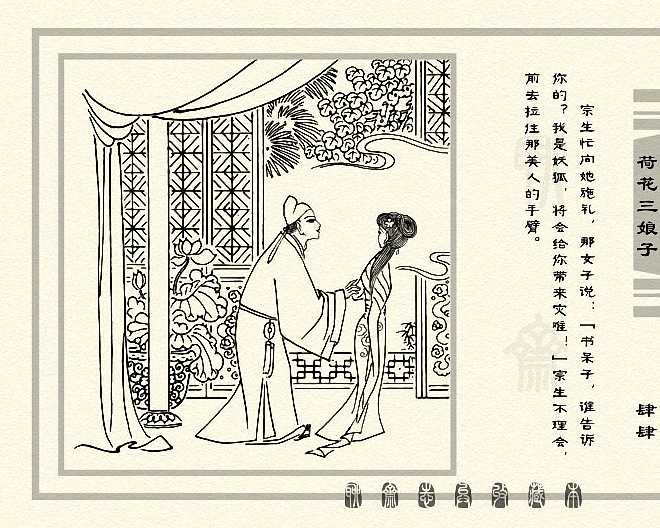 荷花三娘子
肆肆
宗生忙向她施礼，那女子说：「书呆子，谁告诉
你的？我是妖狐，将会给你带来灾难！」宗生不理会，
前去拉住那美人的手臂。